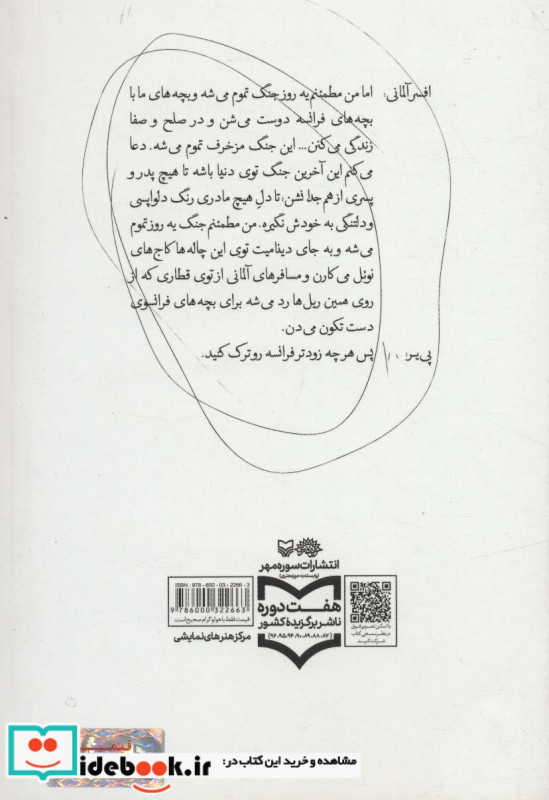 افسر آلمانی: اما من مطمئنم یه روز جنگ تموم می‌شه و بچه‌های ما با
بچه‌های فرانسه دوست می‌شن و در صلح و صفا
زندگی می‌کنن... این جنگ مزخرف تموم می‌شه. دعا
می‌کنم این آخرین جنگ توی دنیا باشه تا هیچ پدر و
پسری از هم جدا نشن، تا دلِ هیچ مادری رنگ دلواپسی
و دلتنگی به خودش نگیره. من مطمئنم جنگ یه روز تموم
می‌شه و به جای دینامیت توی این چاله‌ها کاج‌های
نوئل می‌کارن و مسافرهای آلمانی از توی قطاری که از
روی همین ریل‌ها رد می‌شه برای بچه‌های فرانسوی
دست تکون می‌دن.
پی‌یر: پس هر چه زودتر فرانسه رو ترک کنید.
انتشارات سوره مهر
(وابسته به حوزه هنری)
هفت دوره
ناشر برگزیدهٔ کشور
(۸۷، ۸۸، ۸۹، ۹۰، ۹۴، ۹۵، ۹۶)
مرکز هنرهای نمایشی
ISBN: 978-600-03-2266-3
9786000322663
قیمت فقط با هولوگرام صحیح است
با اسکن تصویر فوق
در نظرسنجی کتاب
شرکت کنید.
مشاهده و خرید این کتاب در:
idebook.ir